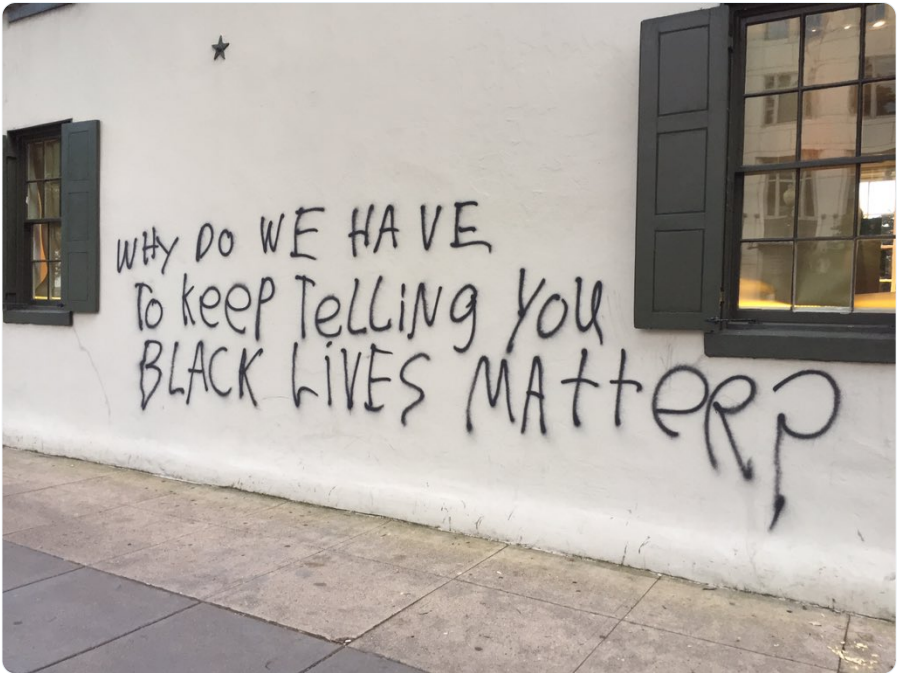 WHY DO WE HAVE
To KeeP TeLLiNg You
BLACK LiVES MAtteR?